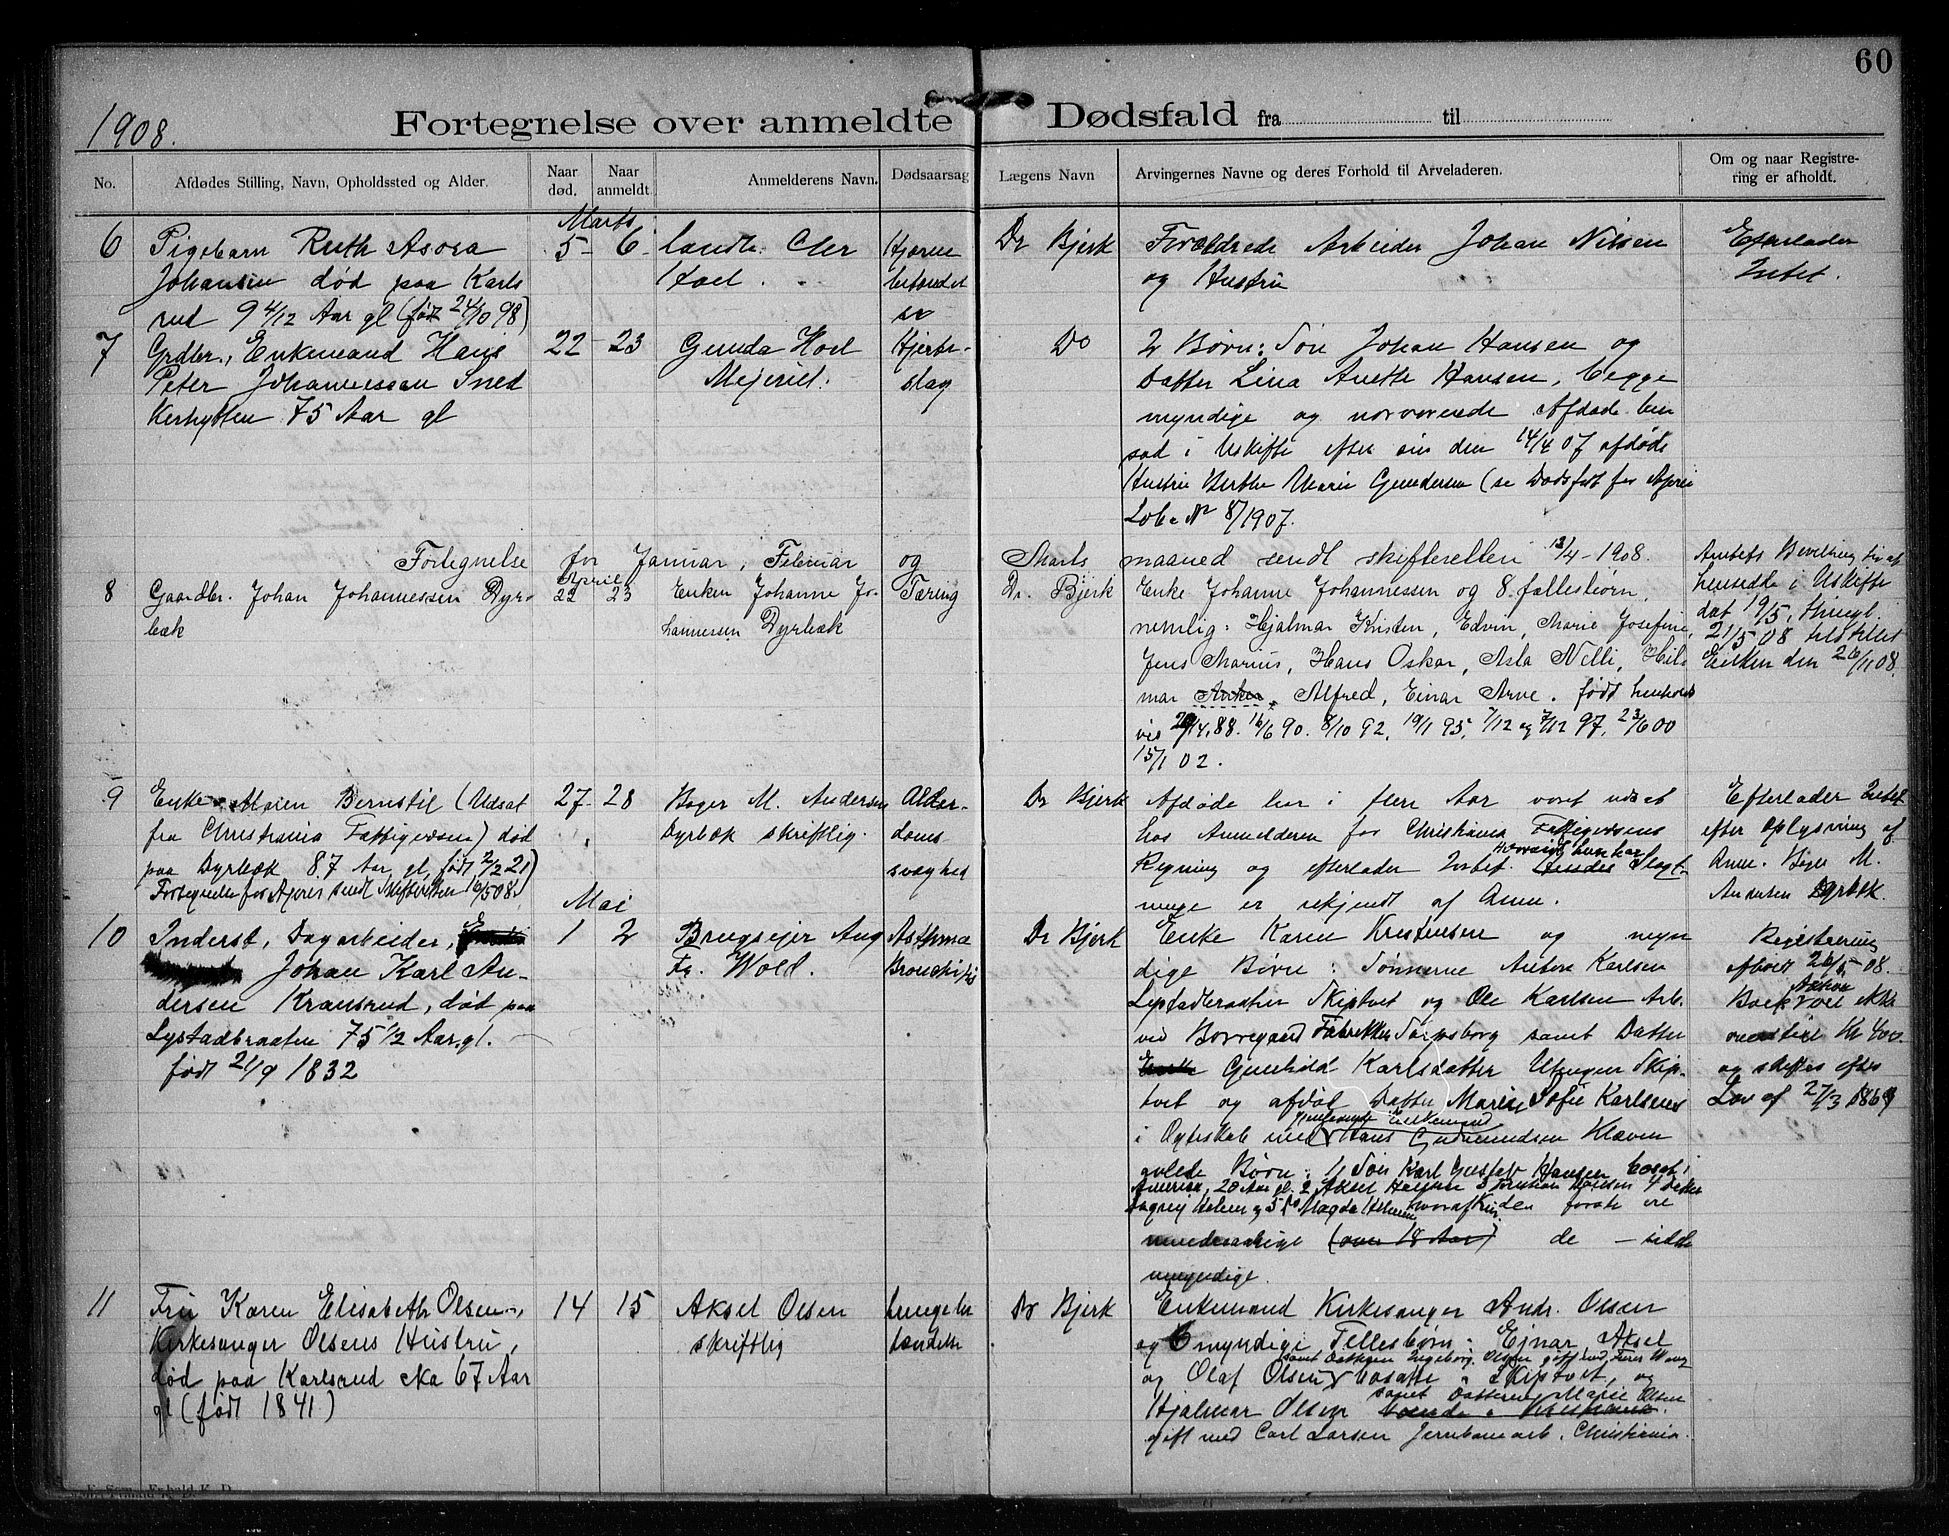 60
1908.
Fortegnelse over anmeldte Dødsfald fra til
No.
Afdødes Stilling, Navn, Opholdssted og Alder.
Naar død.
Naar anmeldt.
Anmelderens Navn.
Dødsaarsag
Lægens Navn
Arvingernes Navne og deres Forhold til Arveladeren.
Om og naar Registrering er afholdt.
6
Pigebarn Ruth Asora
Johansen død paa Karls
rud 9 4/12 Aar gl (født 24/10 98)
Marts
5 - 6
Hoel
Hjerne
Dr Bjerk
Forældrede Arbeider Johan Nilsen
og Hustru
Efterlader
Intet.
7
Grdbr., Enkemand Hans
Peter Johannessen Sned
kerhytten 75 Aar gl
22 - 23
Gunda Hoel
Meieriet.
Hjerte-
slag
Do
2 Børn: Søn Johan Hansen og
Datter Lina Anette Hansen, begge
myndige og nærværende Afdøde hen
sad i Uskifte efter sin den 14/4 07 afdøde
Hustru Berthe Marie Gundersen (se Dødsfort for April
Løbe No 8/1907.
Fortegnelse for Januar, Februar og Marts maaned sendt skifteretten 13/4 - 1908.
8
Gaardbr. Johan Johannessen Dyr-
bæk
April
22 23
Enken Johanne Jo-
hannessen Dyrbæk
Tæring
Dr. Bjerk
Enke Johanne Johannessen og 8 fællesbørn,
nemlig: Hjalmar Kristen, Edvin, Marie Josefine,
Jens Marius, Hans Oskar, Asla Nelli, Hil
mar, Alfred, Einar Arve. født henholds
vis 29/4 88. 16/6 90. 8/10 92, 19/1 95, 7/12 og 7/12 97, 23/6 00
15/1 02.
Amtets Bevilling til at
hensidde i Uskifte
dat 19/5, thingl.
21/5 08 tilstillet
Enken den 26/11 08.
9
Enke Maren Bernstil (Udsat
fra Christiania Fattigvæsen) død
paa Dyrbæk 87 Aar gl, født 2/2 21)
Fortegnelse for April sendt Skifteretten 16/5 08.
27 - 28
Boger M. Andersen
Dyrbæk skriftlig.
Alder-
doms
svaghed
Dr Bjerk
Afdøde har i flere Aar været udsat
hos Anmelderen for Christiania Fattigvæsens
Regning og efterlader Intet. Slægt-
ninge er ukjendt af Anm.
Efterlader Intet
efter Oplysning af
Anm. Boger M.
Andersen Dyrbæk.
10
Inderst, Dagarbeider,
Johan Karl An-
dersen Kransrud, død paa
Lystadbraaten 75 1/2 Aar gl.
født 21/9 1832
Mai
1 2
Brugseier Aug
Fr. Wold.
Asthma
Bronchitis
Dr Bjerk
Enke Karen Kristensen og myn
dige Børn: Sønnerne Anton Karlsen
Lystadbraaten Skiptvet og Ole Karlsen Arb.
ved Borregaard Fabrikker Sarpsborg samt Datter
Gunhild Karlsdatter Utengen Skip-
tvet og afdød Datter Marie Sofie Karlsens
Enkemand
i Ægteskab med Hans Gudmundsen Kleven
avlede Børn: 1 Søn Karl Gustav Hansen bosat i
Amerika, 20 Aar gl. 2 Aksel Hansen 3
Magda
(over 18 Aar) de - sidste
umyndige.
Registrering
afholdt 26/5 08.
Boet
Kr 400
og skiftes efter
Lov af 27/3 1869
11
Fru Karen Elisabeth Olsen,
Kirkesanger Olsens Hustru,
død paa Karlsrud cka 67 Aar
gl (født 1841)
14 15
Aksel Olsen
skriftlig
Lungebe
tændelse
Dr Bjerk
Enkemand Kirkesanger Andr. Olsen
og 6 myndige Fellesbørn: Ejnar, Aksel
samt Datteren Ingeborg Olsen gift med
og Olaf Olsen bosatte i Skiptvet, og
samt Datteren Marie Olsen
Hjalmar Olsen boende i Kristiania.
gift med Carl Larsen Jernbanearb. Christiania.